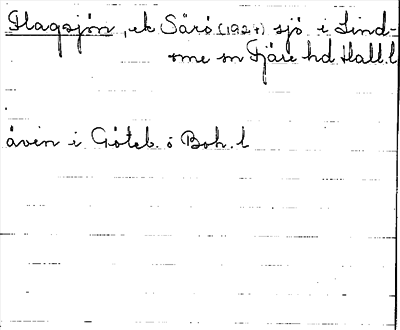 Stagsjön, ek Särö (1924) sjö i Lind-
ome sn Fjäre hd Hall. l
även i Göteb. o Boh. l